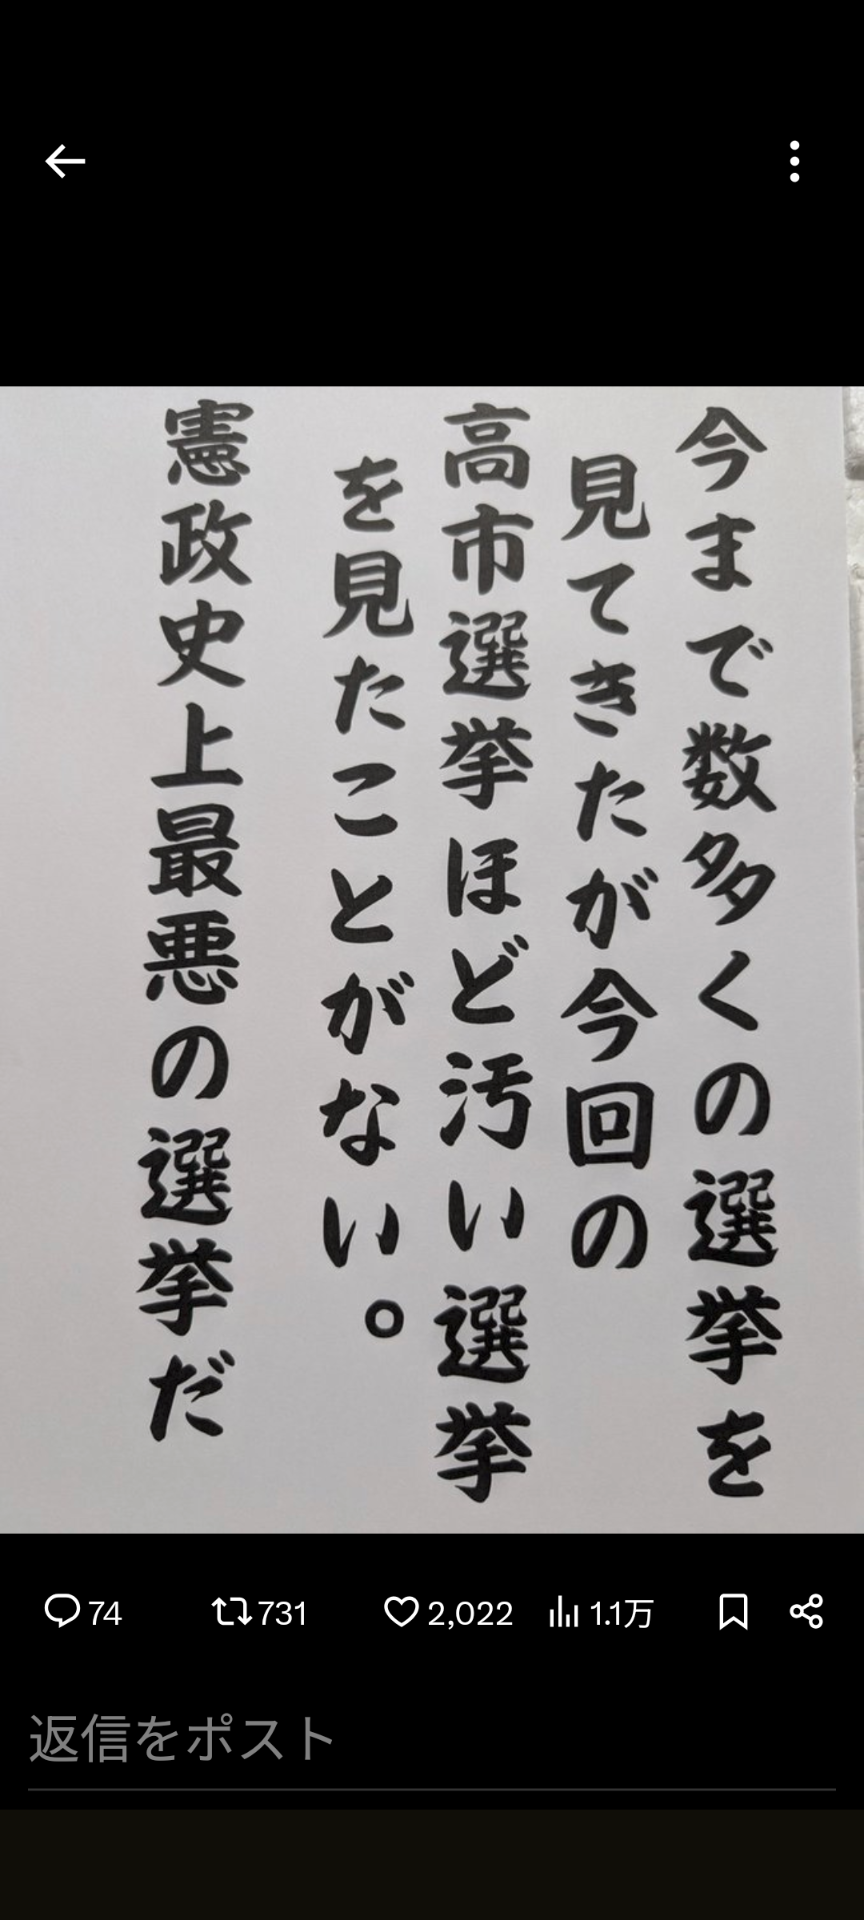 今まで数多くの選挙を
見てきたが今回の
高市選挙ほど汚い選挙
を見たことがない。
憲政史上最悪の選挙だ
74 731 2,022 1.1万
返信をポスト